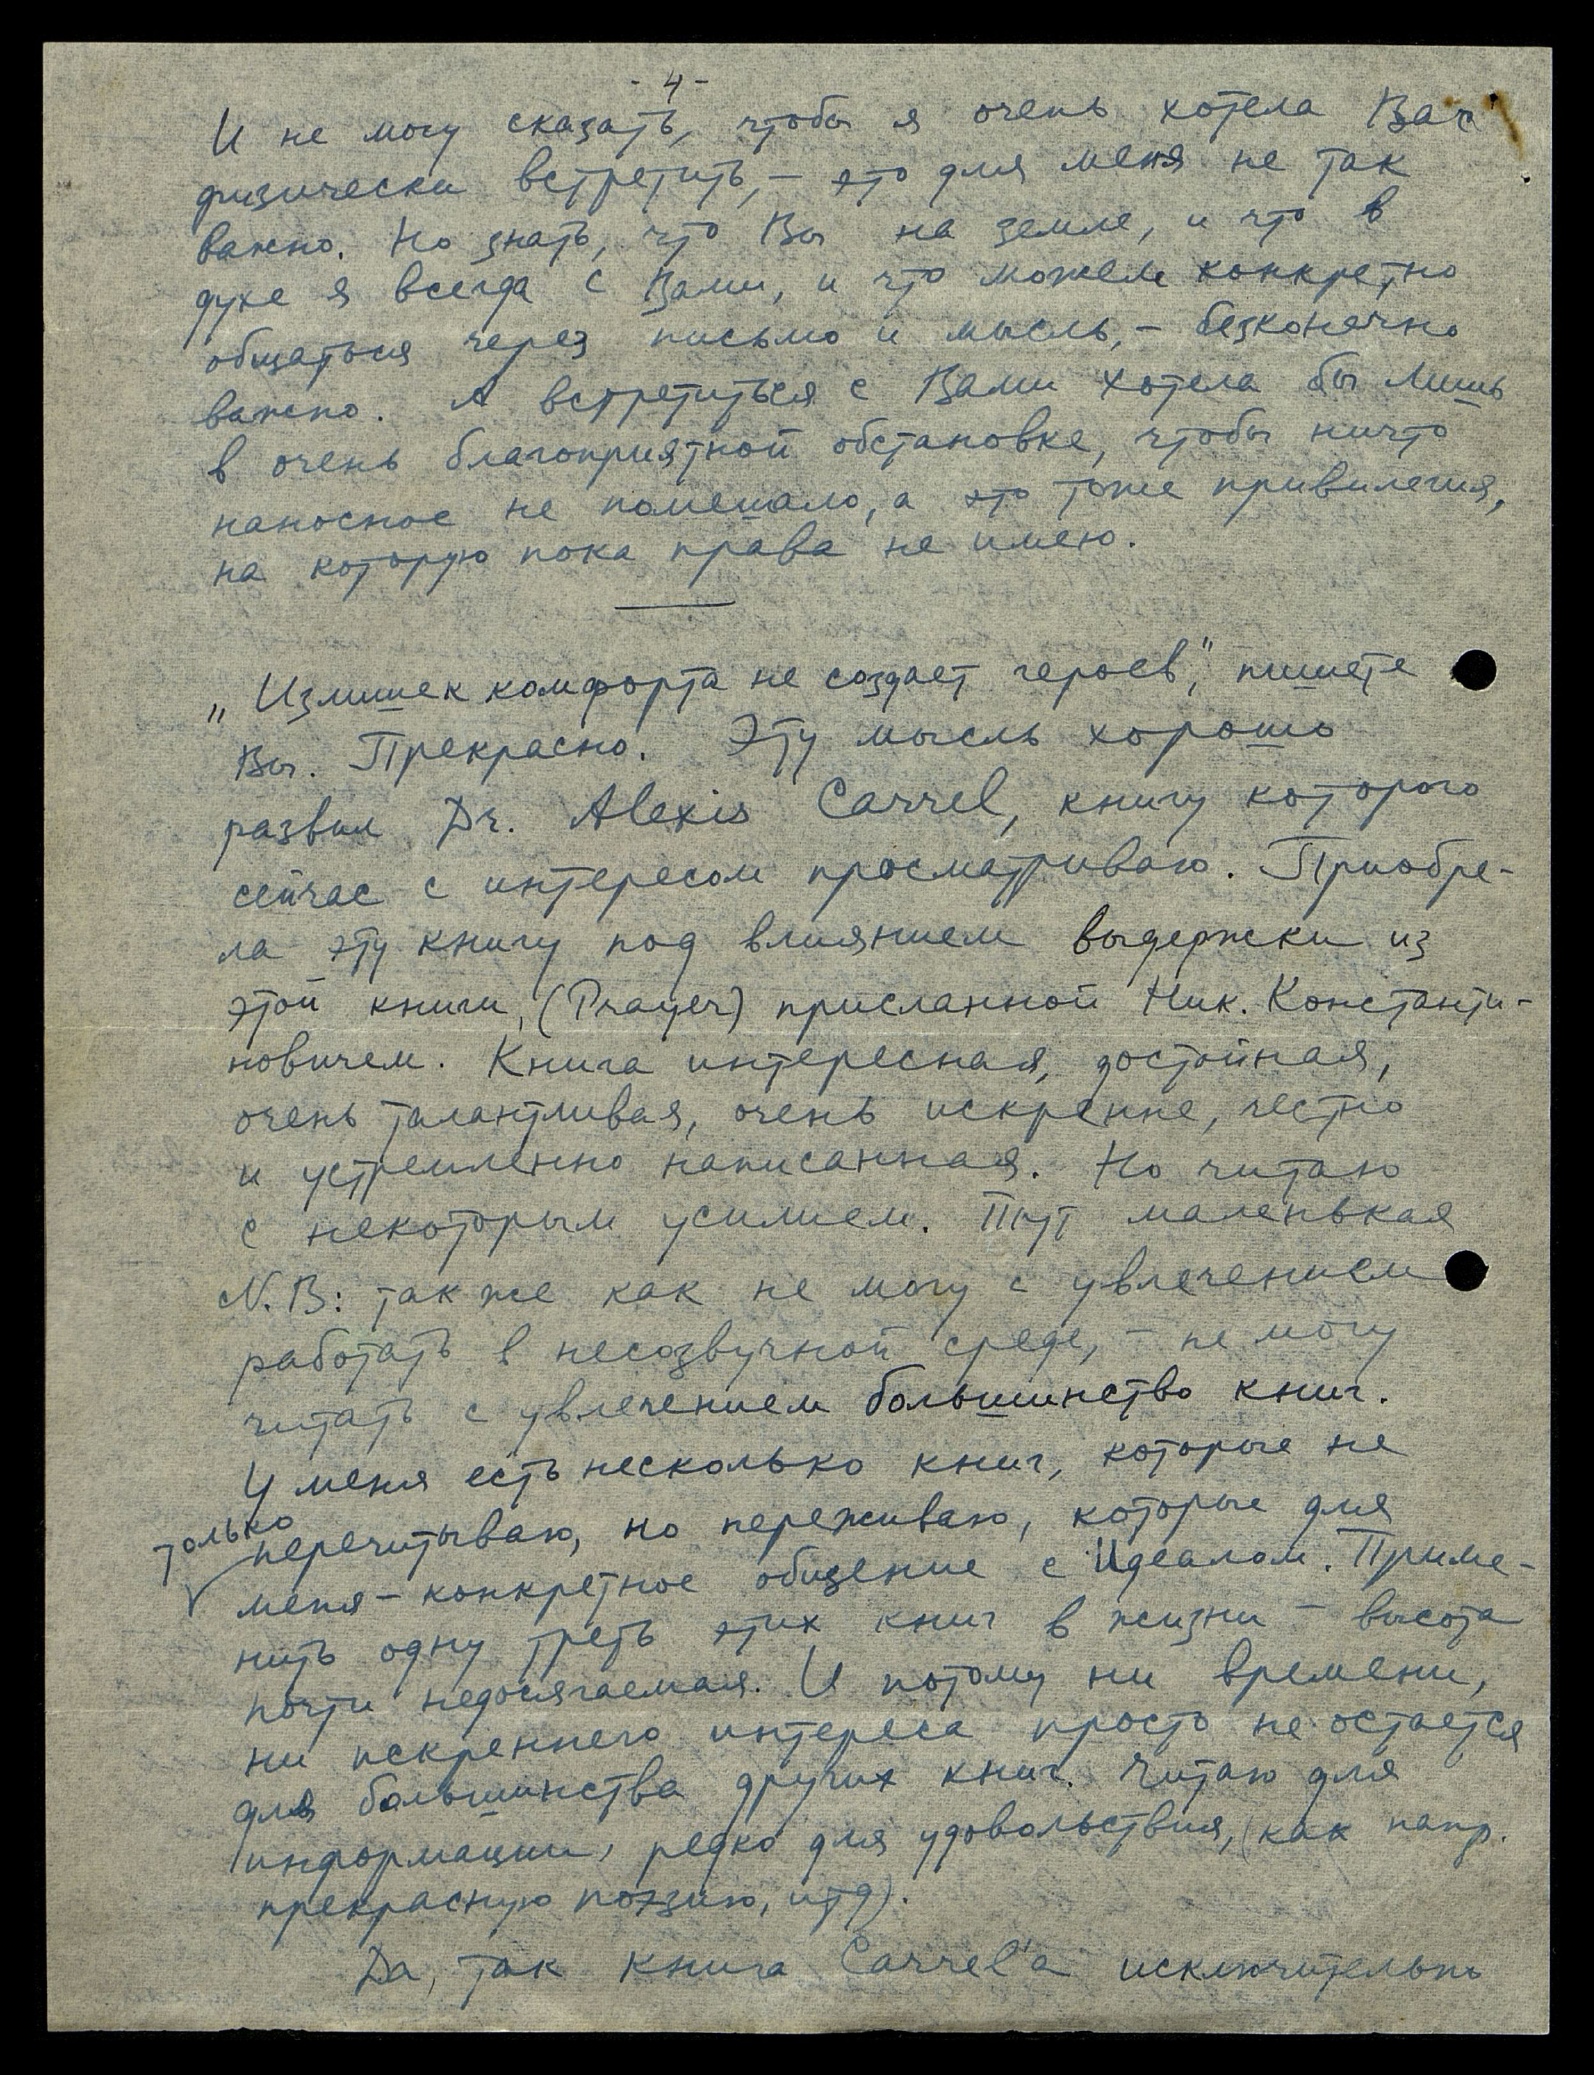 - 4 -
И не могу сказать, чтобы я очень хотела Вас
физически встретить, - это для меня не так
важно. Но знать, что Вы на земле, и что в
духе я всегда с Вами, и что можем конкретно
общаться через письмо и мысль, - безконечно
важно. А встретиться с Вами хотела бы лишь
в очень благоприятной обстановке, чтобы ничто
наносное не помешало, а это тоже привилегия,
на которую пока права не имею.
„Излишек комфорта не создает героев", пишете
Вы. Прекрасно. Эту мысль хорошо
развил Dr. Alexis Carrel, книгу которого
сейчас с интересом просматриваю. Приобре-
ла эту книгу под влиянием выдержки из
этой книги, (Prayer) присланной Ник. Константи-
новичем. Книга интересная, достойная,
очень талантливая, очень искренне, честно
и устремленно написанная. Но читаю
с некоторым усилием. Тут маленькая
N.B: так же как не могу с увлечением
работать в несозвучной среде, - не могу
читать с увлечением большинство книг.
У меня есть несколько книг, которые не
только перечитываю, но переживаю, которые для
меня - конкретное общение с Идеалом. Приме-
нить одну треть этих книг в жизни - высота
почти недосягаемая. И потому ни времени,
ни искреннего интереса просто не остается
для большинства других книг. Читаю для
информации, редко для удовольствия, (как напр.
прекрасную поэзию, итд).
Да, так книга Carrel'a исключительно